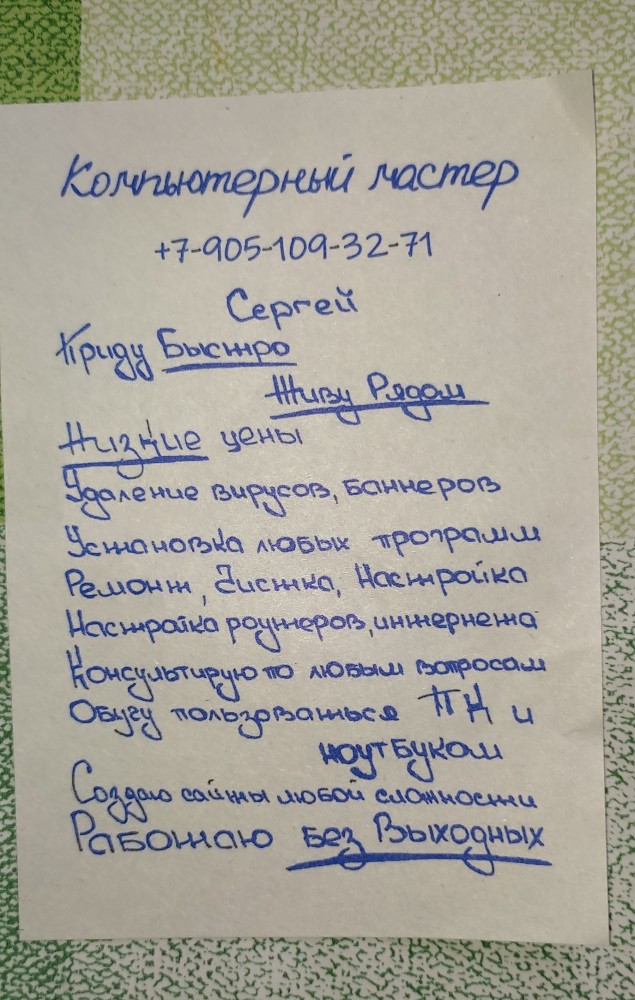 Компьютерный мастер
+7-905-109-32-71
Сергей
Приду Быстро
Живу Рядом
Низкие цены
Удаление вирусов, баннеров
Установка любых программ
Ремонт, Чистка, Настройка
Настройка роутеров, интернета
Консультирую по любым вопросам
Обучу пользоваться ПК и
ноутбуком
Создаю сайты любой сложности
Работаю без Выходных